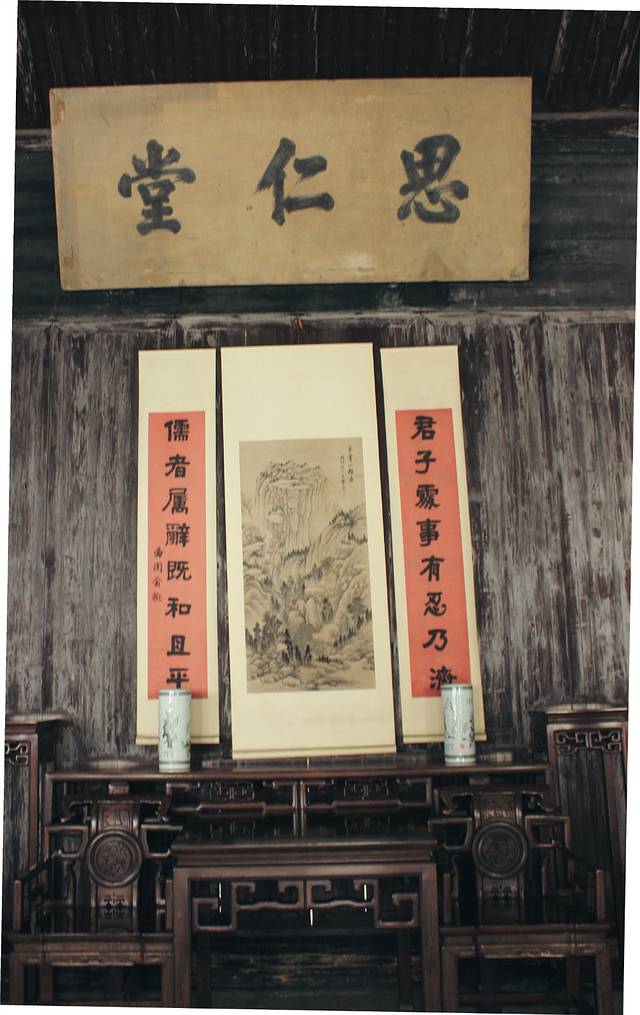 思仁堂
君子處事有忍乃濟
儒者属辭既和且平
曲園俞樾